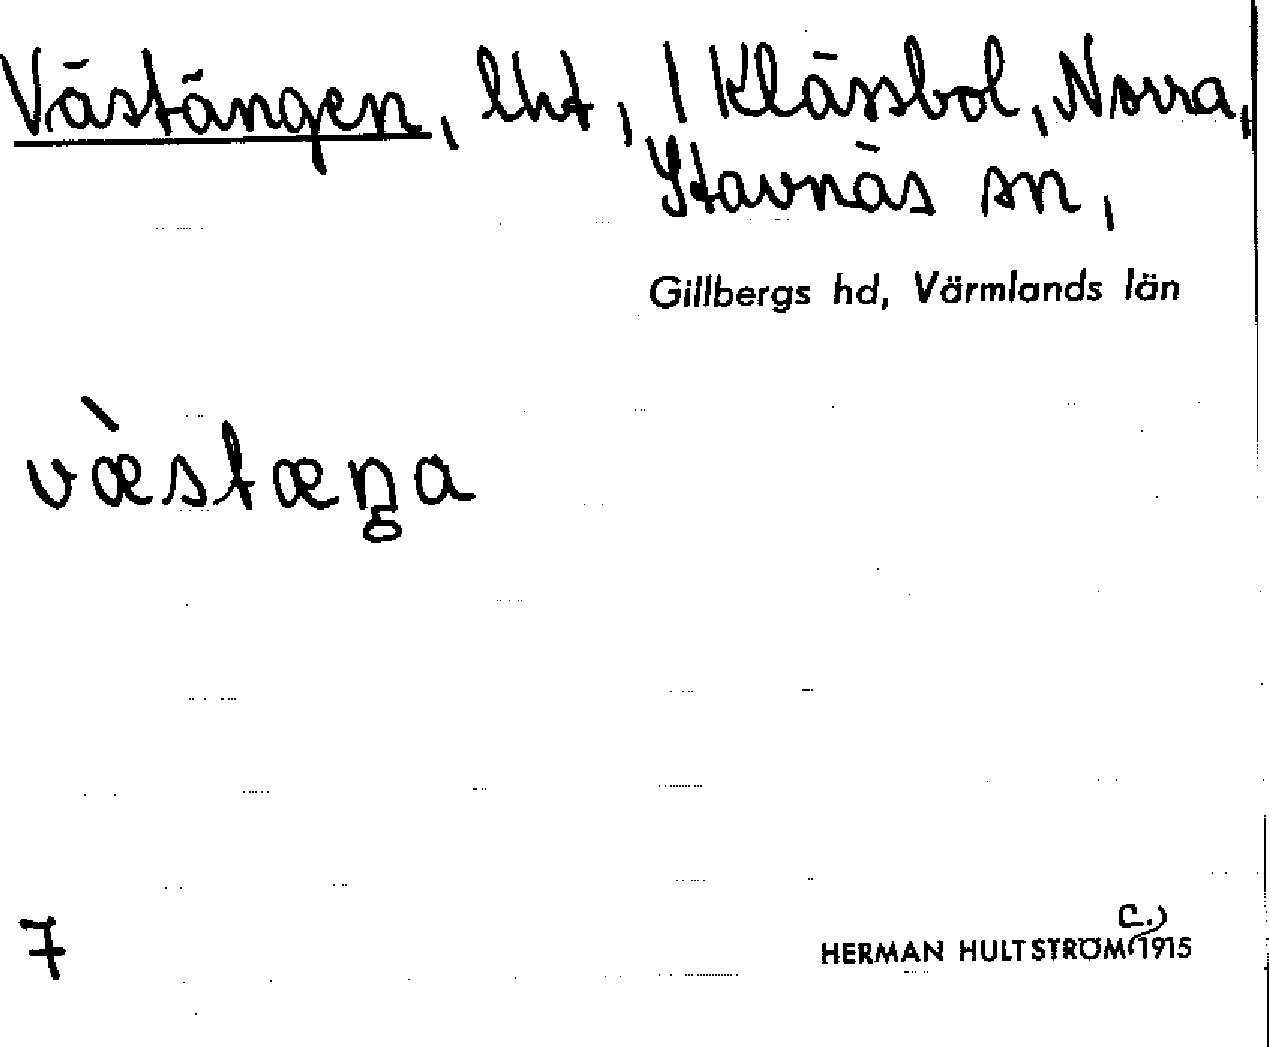 Västängen, lht, / Klässbol, Norra,
Stavnäs sn,
Gillbergs hd, Värmlands län
væ̀stæŋa
7
c.)
HERMAN HULTSTRÖM 1915